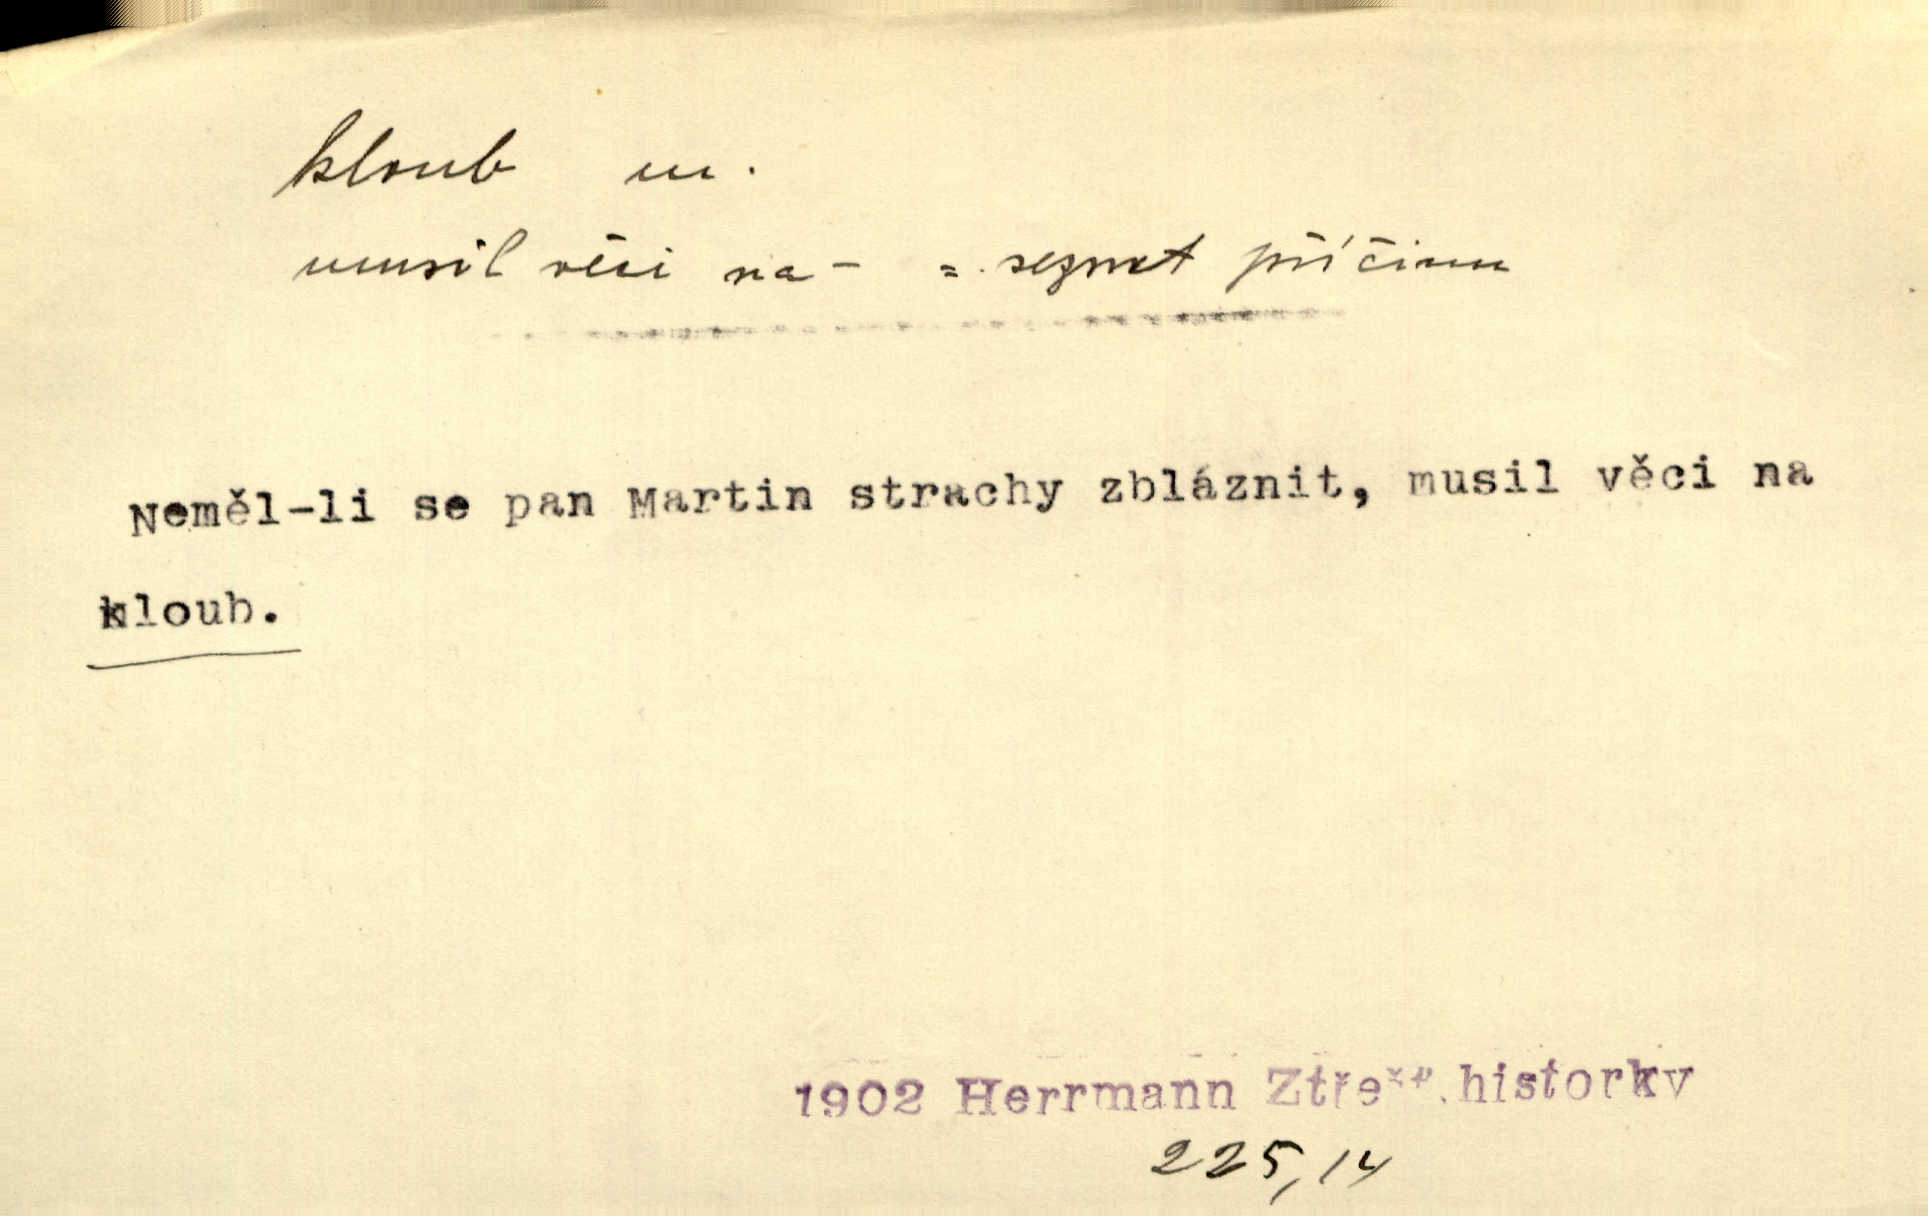 kloub m.
musil věci na - =. seznat příčinu
Neměl-li se pan Martin strachy zbláznit, musil věci na
kloub.
1902 Herrmann historky
225,14